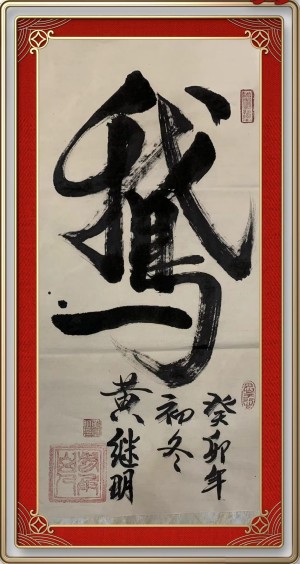 鹅
癸卯年
初冬
黄继明